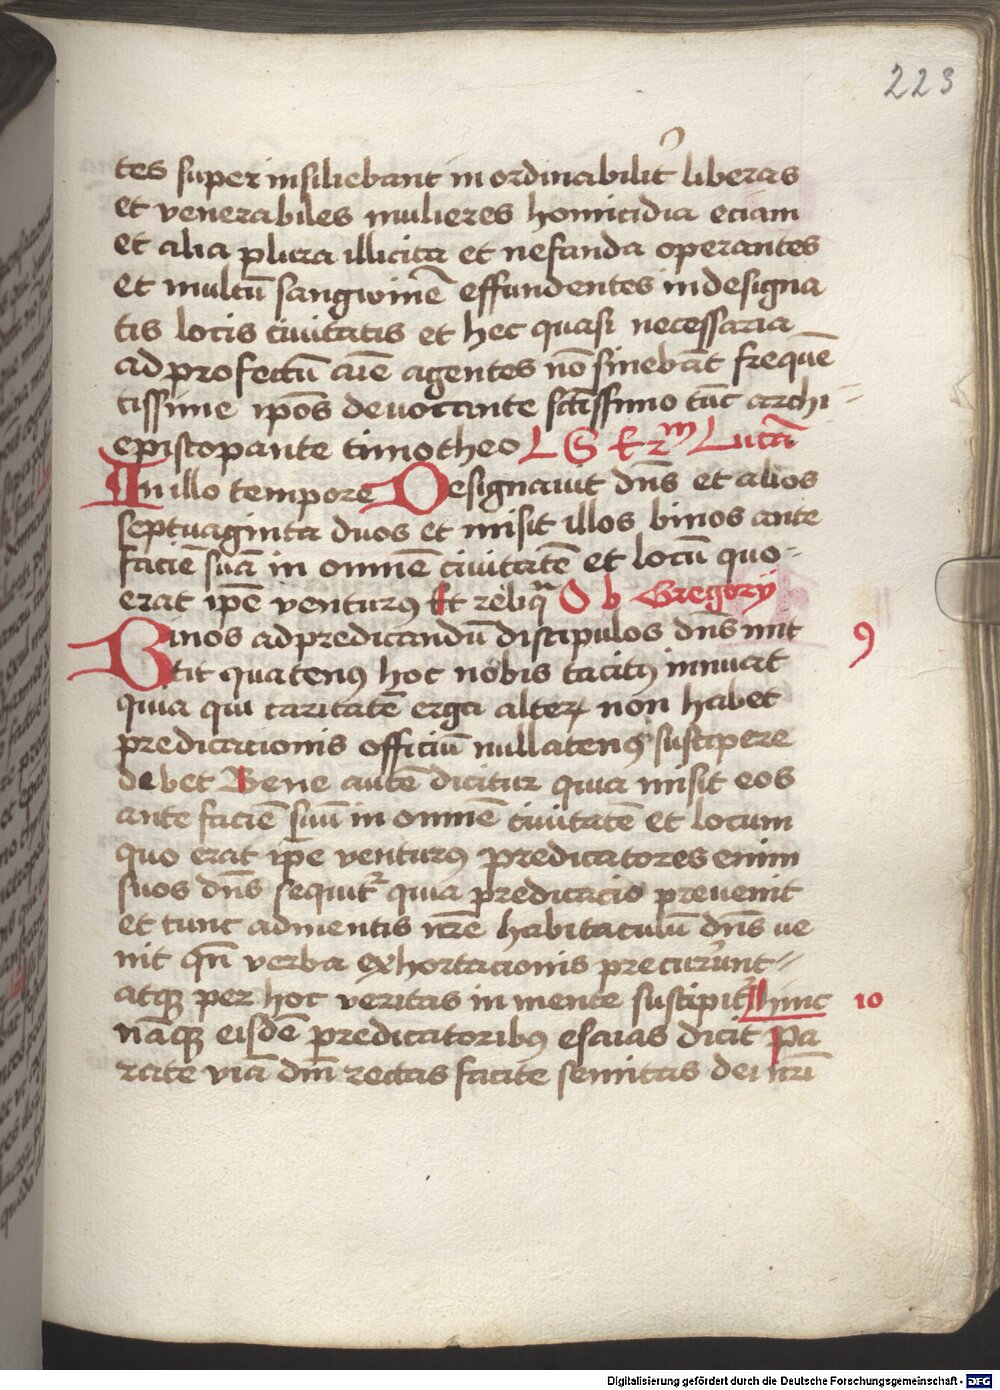 223
tes super insiliebant in ordinabilit᷒ liberas
et venerabiles mulieres homicidia eciam
et alia plura illicita et nefanda operantes
et multū sangwinē effundentes in designa
tis locis ciuitatis et hec quasi necessaria
ad profectū aīe agentes nō sinebāt frequē
tissime ipōs deuocante sctīssimo tūc archi-
episcopante timotheo L S Lucā
In illo tempore Designauit dn̄s et alios
septuaginta duos et misit illos binos ante
faciē suā in omnē ciuitatē et locū quo-
erat ip̄e venturꝰ Et reliq̄ O b Gregorÿ
Binos ad predicandū discipulos dn̄s mit 9
tit quatenꝰ hoc nobis tacitꝰ innuat
quia qui caritatē erga alterꝝ non habet
predicationis officiū nullatenꝰ suscipere
debet Bene autē dicitur quia misit eos
ante faciē suā in omnē ciuitatē et locum
quo erat ip̄e venturꝰ predicatores enim
suos dn̄s sequit᷑ quia predicacio preuenit
et tunc ad mentis nr̄e habitaculū dn̄s ue
nit qn̄ verba exhortacionis precurūnt-
atqꝫ per hoc veritas in mente suscipit᷑ hinc 10
nāqꝫ eisdē predicatoribꝰ esaias dicit Pa
rate viā dn̄i rectas facite semitas dei nr̄i
Digitalisierung gefördert durch die Deutsche Forschungsgemeinschaft - DFG